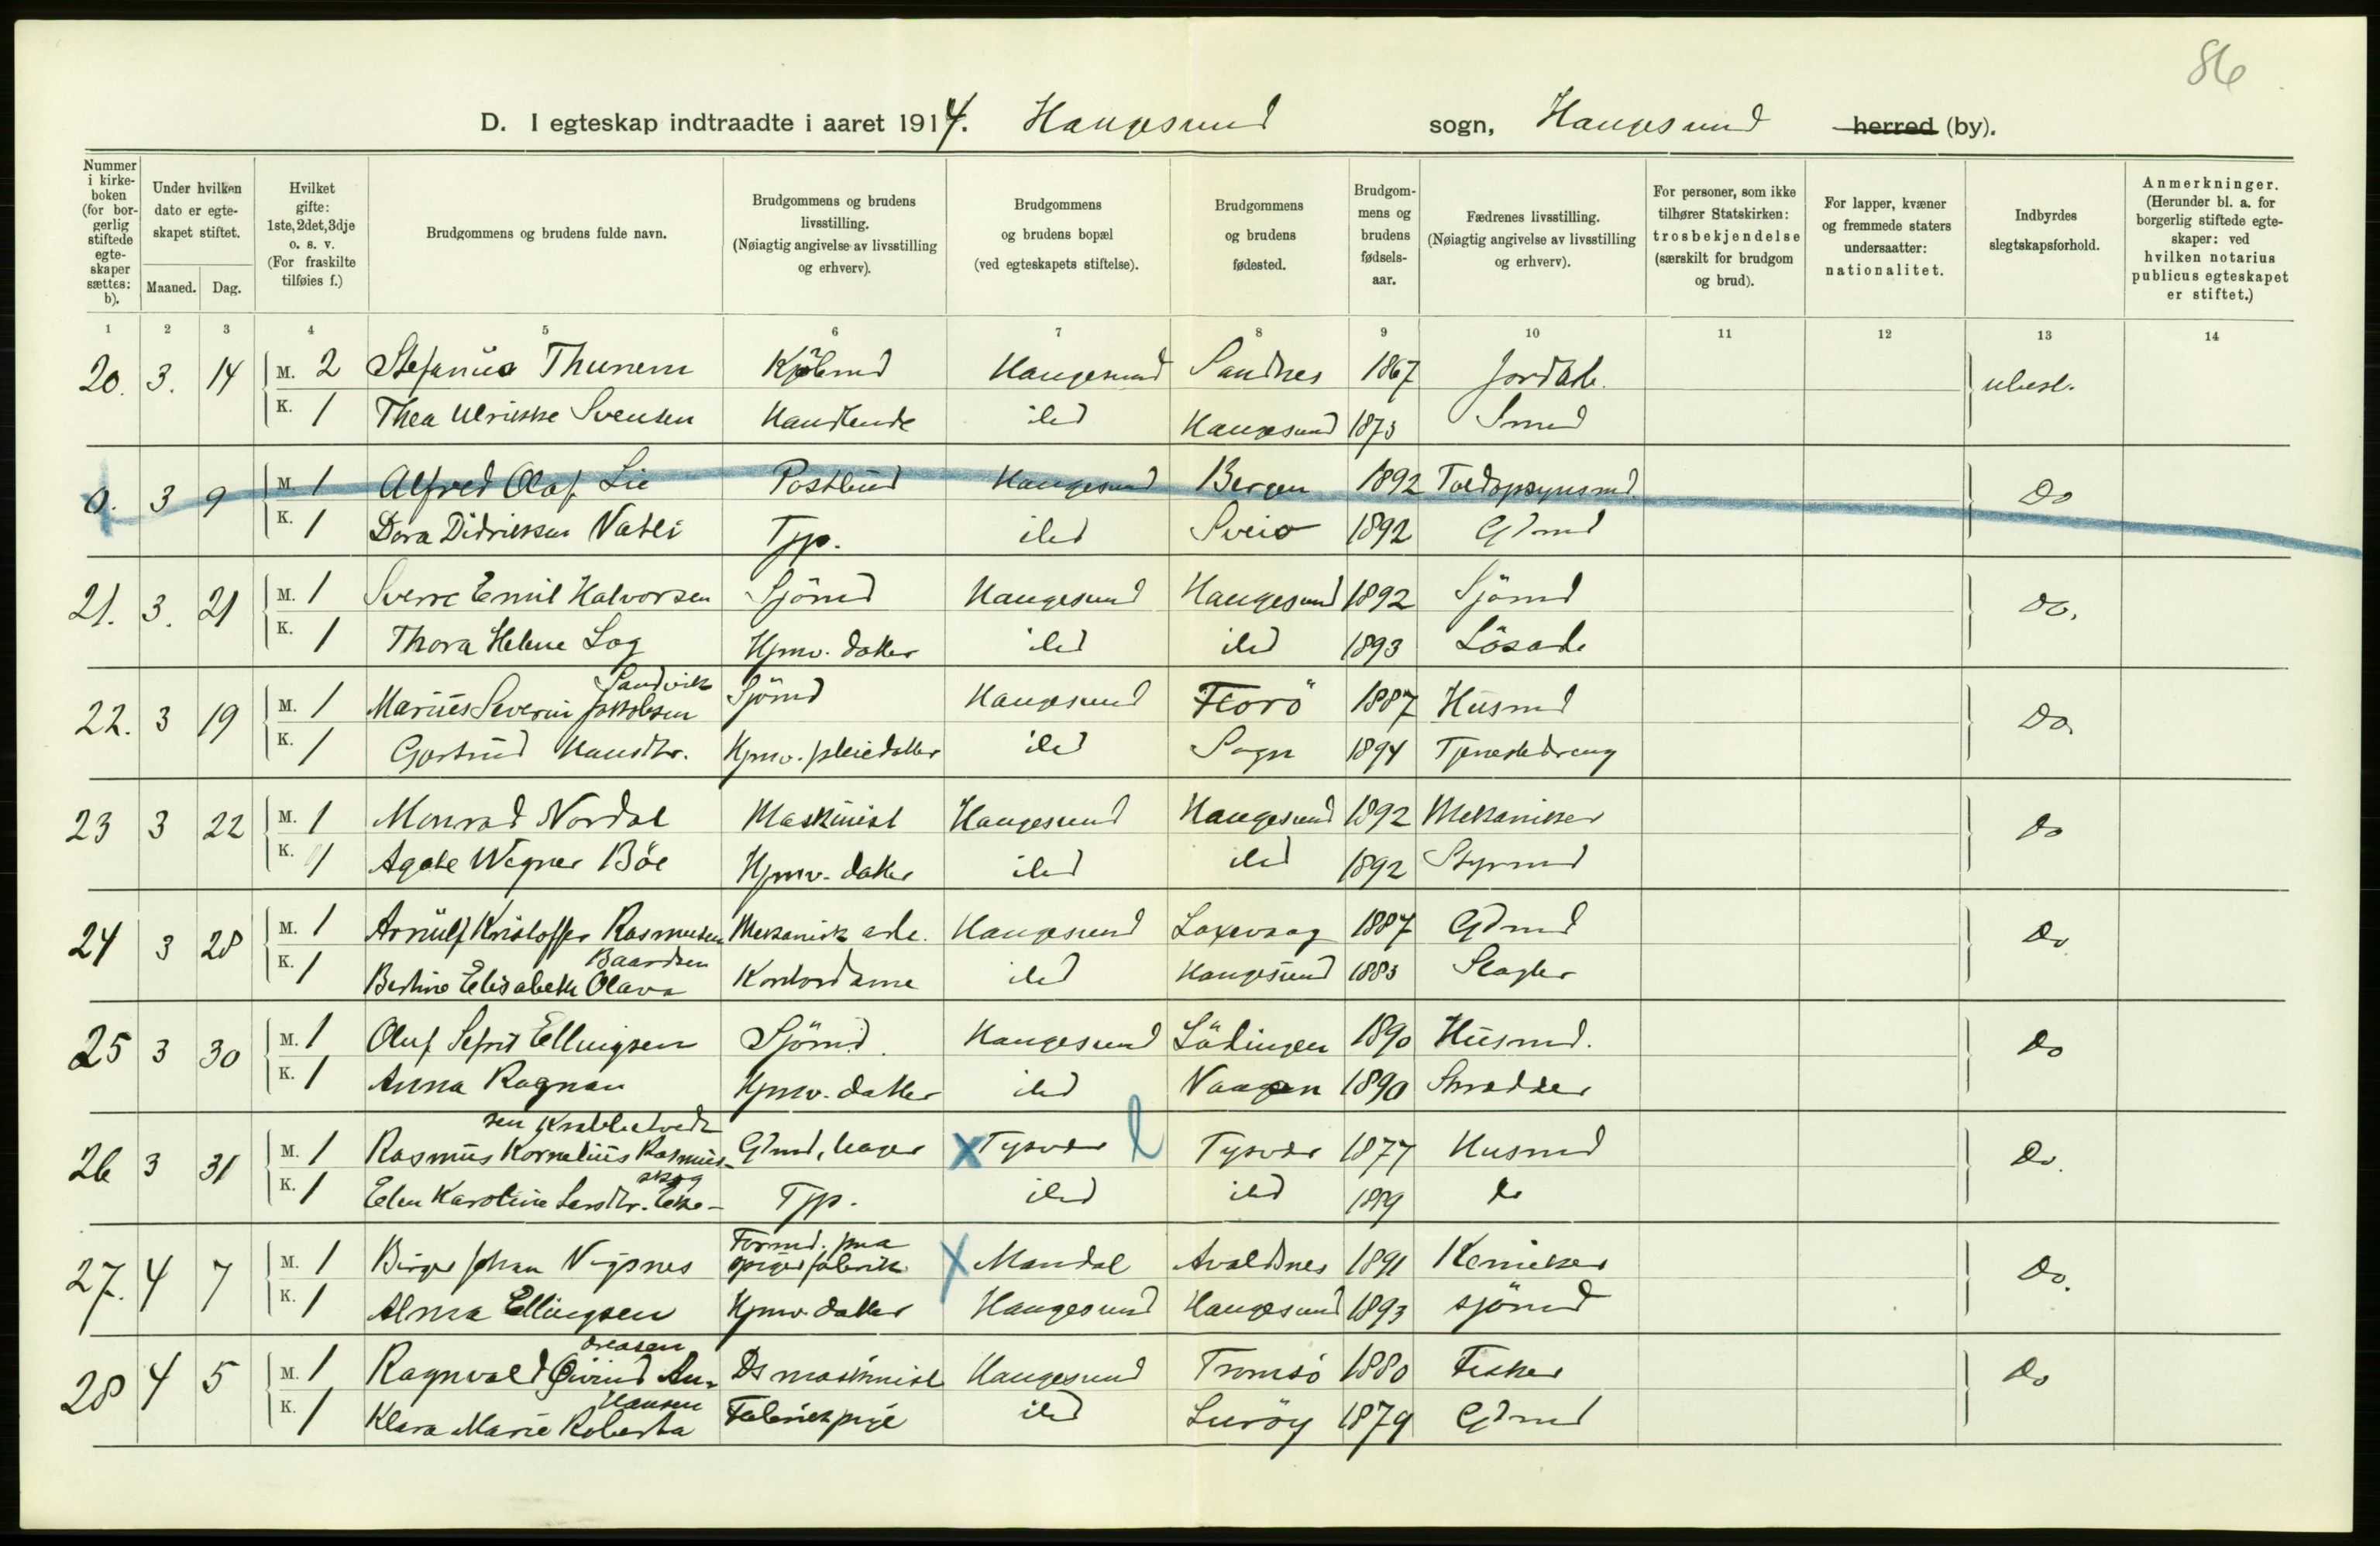 86
D. I egteskap indtraadte i aaret 1914. Haugesund sogn, Haugesund herred (by).
Nummer i kirke-boken (for bor-gerlig stiftede egte-skaper sættes: b).
Under hvilken dato er egte-skapet stiftet.
Maaned. Dag.
Hvilket gifte: 1ste, 2det, 3dje o. s. v. (For fraskilte tilføies f.)
Brudgommens og brudens fulde navn.
Brudgommens og brudens livsstilling. (Nøiagtig angivelse av livsstilling og erhverv).
Brudgommens og brudens bopæl (ved egteskapets stiftelse).
Brudgommens og brudens fødested.
Brudgom-mens og brudens fødsels-aar.
Fædrenes livsstilling. (Nøiagtig angivelse av livsstilling og erhverv).
For personer, som ikke tilhører Statskirken: trosbekjendelse (særskilt for brudgom og brud).
For lapper, kvæner og fremmede staters undersaatter: nationalitet.
Indbyrdes slegtskapsforhold.
Anmerkninger. (Herunder bl. a. for borgerlig stiftede egte-skaper: ved hvilken notarius publicus egteskapet er stiftet.)
1 2 3 4 5 6 7 8 9 10 11 12 13 14
20. 3. 14 M. 2 Stefanius Thunem Kjøbmd Haugesund Sandnes 1867 Jordbr. ubesl.
K. 1 Thea Ulrikke Svensen Handlende ibid Haugesund 1873 Smed
0. 3 9 M. 1 Alfred Olaf Lie Postbud Haugesund Bergen 1892 Toldopsynsmd. Do
K. 1 Dora Didriksen Vatli Tjp. ibid Sveio 1892 Gdmd
21. 3. 21 M. 1 Sverre Emil Halvorsen Sjömd Haugesund Haugesund 1892 Sjömd Do.
K. 1 Thora Helene Log Hjmv. datter ibid ibid 1893 Lösarb
22. 3 19 M. 1 Marius Severin Jakobsen Sandvik Sjömd Haugesund Florö 1887 Husmd Do.
K. 1 Gjertrud Hansdtr. Hjmv. pleiedatter ibid Sogn 1894 Tjenestedreng
23 3 22 M. 1 Monrad Nordal Maskinist Haugesund Haugesund 1892 Mekaniker Do
K. 1 Agate Wegner Böe Hjmv. datter ibid ibid 1892 Styrmd
24 3 28 M. 1 Arnulf Kristoffer Rasmussen Mekanisk arb. Haugesund Laxevaag 1887 Gdmd Do
K. 1 Bertine Elisabeth Olava Baardsen Kontordame ibid Haugesund 1883 Slagter
25 3 30 M. 1 Oluf Sefrid Ellingsen Sjömd. Haugesund Lödingen 1890 Husmd. Do
K. 1 Anna Rognan Hjmv. datter ibid Vaagen 1890 Skrædder
26 3 31 M. 1 Rasmus Kornelius Rasmus-sen Krabbetvedt Gdmd, bager X Tysvær Tysvær 1877 Husmd Do.
K. 1 Elen Karoline Larsdtr. Eke-skog Tjp. ibid ibid do
27. 4 7 M. 1 Birger Johan Vigsnes Formd. paa spigerfabrik X Mandal Avaldsnes 1891 Kemiker Do.
K. 1 Alma Ellingsen Hjmv. datter Haugesund Haugesund 1893 sjömd
28 4 5 M. 1 Ragnvald Øivind An-dreasen Ds maskinist Haugesund Tromsö 1880 Fisker Do
K. 1 Klara Marie Roberta Hansen Fabrikpige ibid Luröy 1879 Gdmd